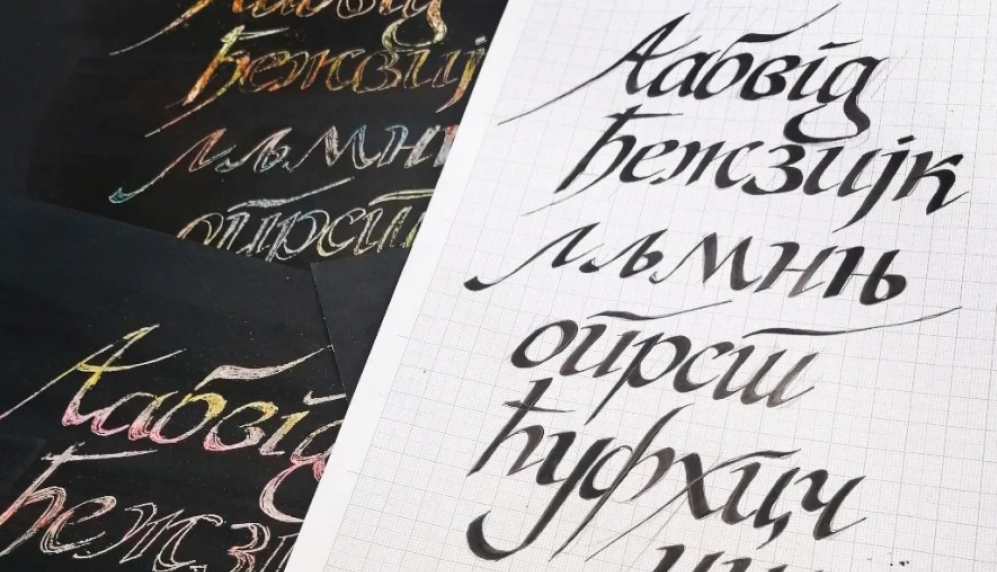 Аабвгд
ђежзиј
лљмн
опрст
Аабвгд
ђежз
Аабвгд
ђежзијк
лљмнњ
опрст
ћуфхцч